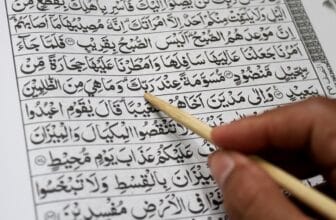 لَنْ يَصِلُوْٓا اِلَيْكَ فَاَسْرِ بِاَهْلِكَ بِقِطْعٍ مِّنَ
الَّيْلِ وَلَا يَلْتَفِتْ مِنْكُمْ اَحَدٌ اِلَّا امْرَاَتَكَ اِنَّهٗ مُصِيْبُهَا
اِنَّ مَوْعِدَهُمُ الصُّبْحُ اَلَيْسَ الصُّبْحُ بِقَرِيْبٍ فَلَمَّا جَاۤءَ
اَمْرُنَا جَعَلْنَا عَالِيَهَا سَافِلَهَا وَاَمْطَرْنَا عَلَيْهَا حِجَارَةً مِّنْ
سِجِّيْلٍ مَّنْضُوْدٍ مُّسَوَّمَةً عِنْدَ رَبِّكَ وَمَا هِيَ مِنَ الظّٰلِمِيْنَ
بِبَعِيْدٍ وَاِلٰى مَدْيَنَ اَخَاهُمْ قَالَ يٰقَوْمِ اعْبُدُوا
تَنْقُصُوا الْمِكْيَالَ وَالْمِيْزَانَ
عَلَيْكُمْ عَذَابَ يَوْمٍ مُّحِيْطٍ
بِالْقِسْطِ وَلَا تَبْخَسُوا
فِى الْاَرْضِ مُفْسِدِيْنَ